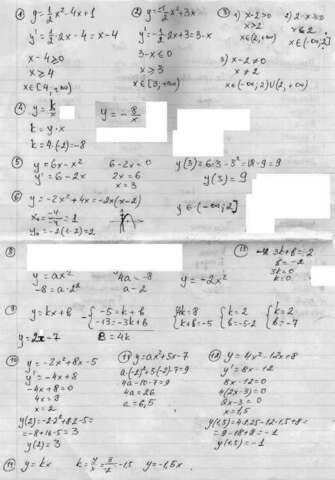 ① y = 1/2 x² - 4x + 1
y' = 1/2 · 2x - 4 = x - 4
x - 4 ≥ 0
x ≥ 4
x ∈ [4; +∞)
② y = -1/2 x² + 3x
y' = -1/2 · 2x + 3 = 3 - x
3 - x ≤ 0
x ≥ 3
x ∈ [3; +∞)
③ 1) x - 2 > 0
x > 2
x ∈ (2; +∞)
2) 2 - x ≥ 0
x ≤ 2
x ∈ (-∞; 2]
3) x - 2 ≠ 0
x ≠ 2
x ∈ (-∞; 2) ∪ (2; +∞)
④ y = k/x
k = y · x
k = 4 · (-2) = -8
y = - 8/x
⑤ y = 6x - x²
y' = 6 - 2x
6 - 2x = 0
2x = 6
x = 3
y(3) = 6·3 - 3² = 18 - 9 = 9
y(3) = 9
⑥ y = -2x² + 4x = -2x(x - 2)
x₀ = -4/-4 = 1
y₀ = -2(1-2) = 2
y ∈ (-∞; 2]
⑧
y = ax²
-8 = a · 2²
4a = -8
a - 2
y = -2x²
3k + b = -2
b = -2
3k = 0
k = 0
⑨ y = kx + b
-{ -5 = k + b
-13 = -3k + b
4k = 8
k + b = -5
{ k = 2
b = -5 - 2
{ k = 2
b = -7
y = 2x - 7
8 = 4k
⑩ y = -2x² + 8x - 5
y' = -4x + 8
-4x + 8 = 0
4x = 8
x = 2
y(2) = -2·2² + 8·2 - 5 =
= -8 + 16 - 5 = 3
y(2) = 3
⑪ y = ax² + 5x - 7
a · (-2)² + 5·(-2) - 7 = 9
4a - 10 - 7 = 9
4a = 26
a = 6,5
⑫ y = 4x² - 12x + 8
y' = 8x - 12
8x - 12 = 0
4(2x - 3) = 0
2x - 3 = 0
x = 1,5
y(1,5) = 4·2,25 - 12·1,5 + 8 =
= 9 - 18 + 8 = -1
y(1,5) = -1
y = kx
k = y/x = 3/-2 = -1,5
y = -1,5x